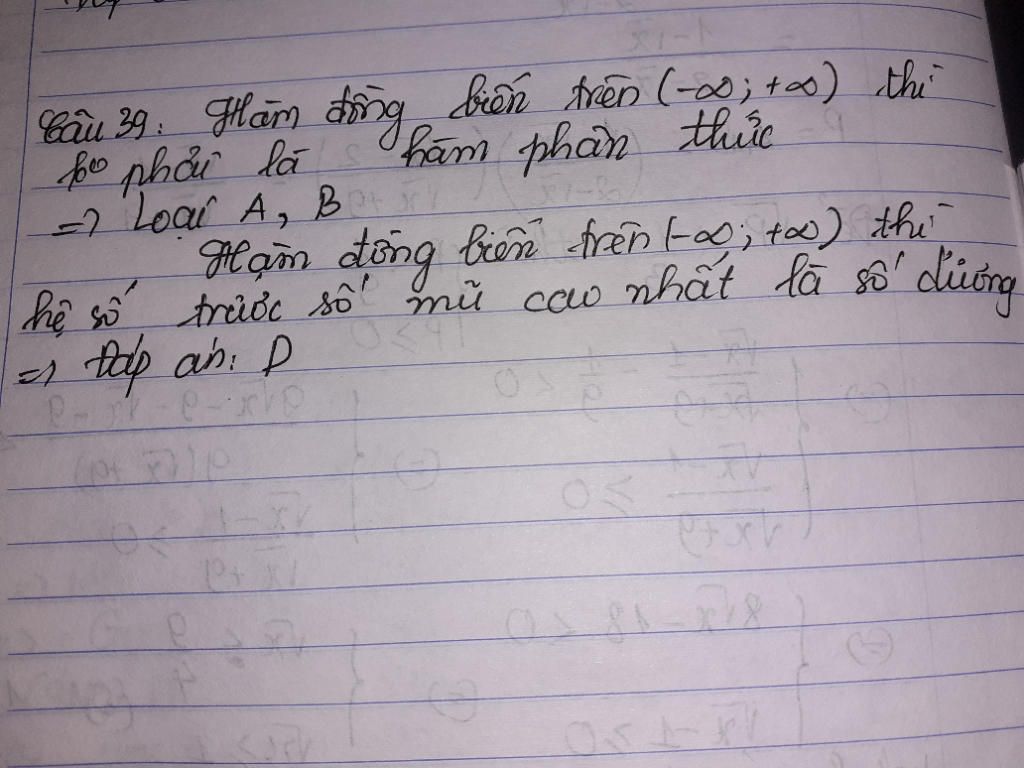 Câu 39: Hàm đồng biến trên (-∞; +∞) thì
ko phải là hàm phân thức
=> Loại A, B
Hàm đồng biến trên (-∞; +∞) thì
hệ số trước số mũ cao nhất là số dương
=> Đáp án: D